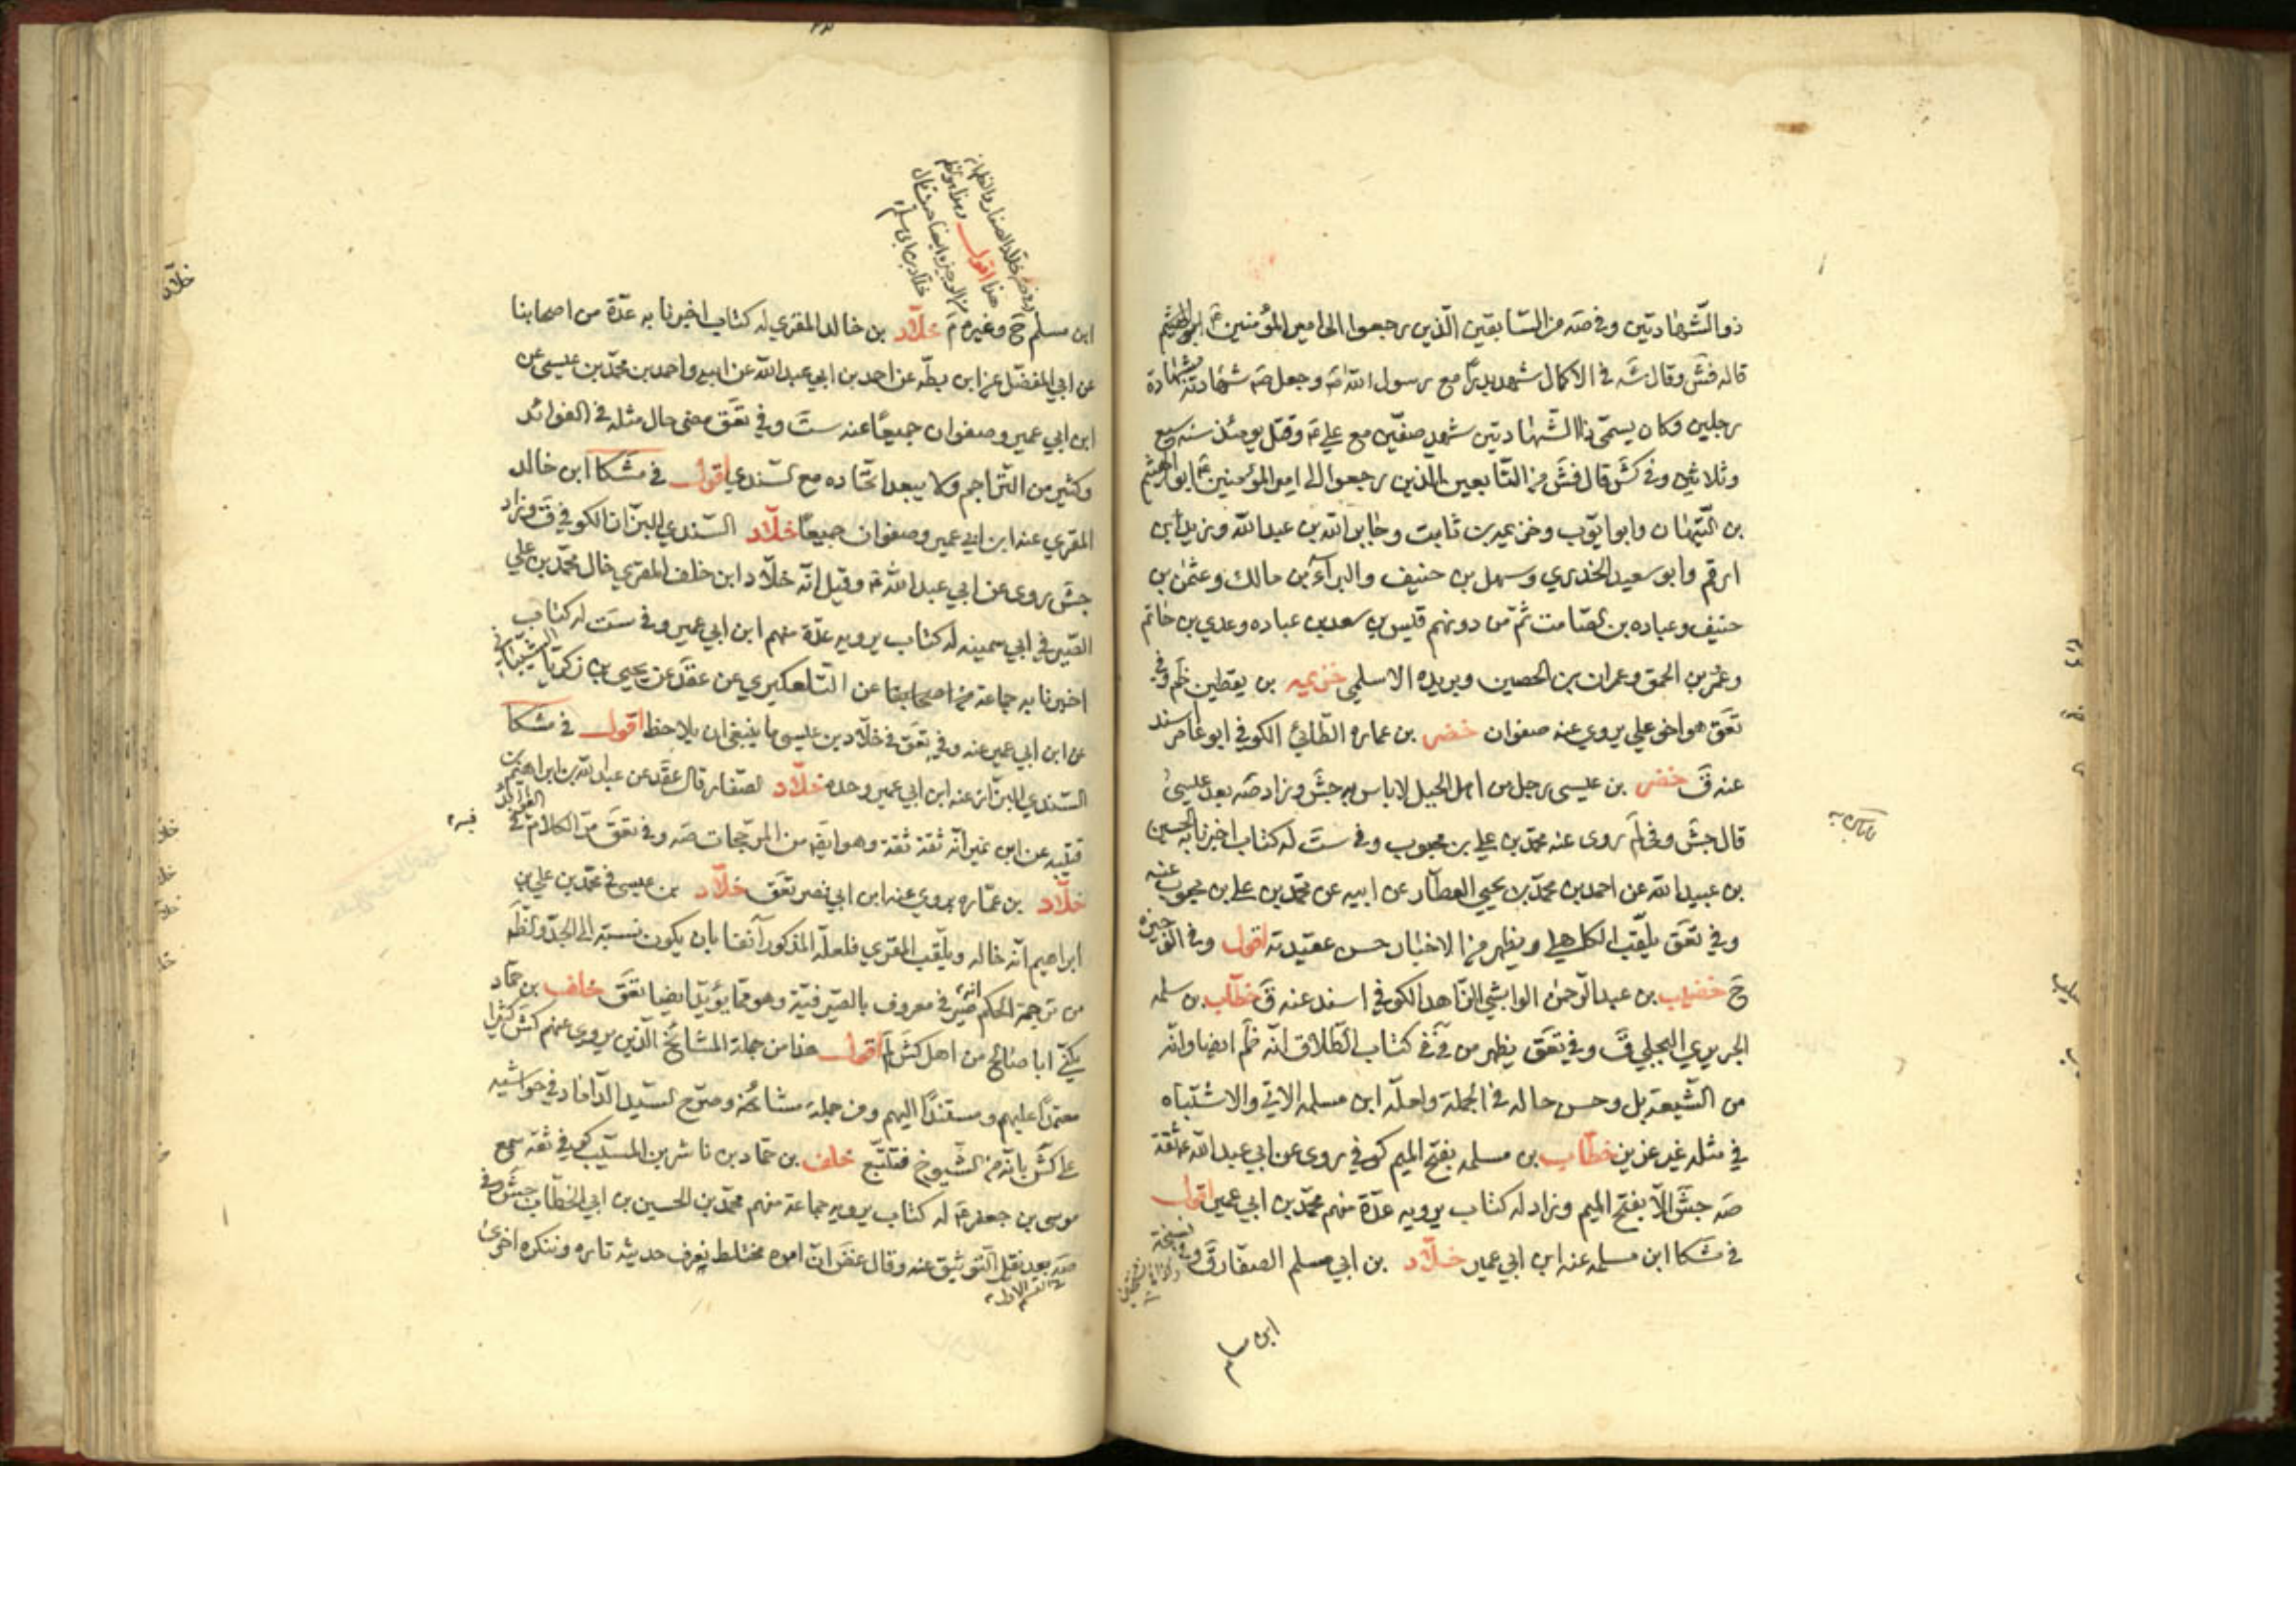 ذو الشّهادتين وفي صَه من السّابقين الّذين رجعوا الى امير المؤمنين عَ ابو الهيثم
قاله فَش وقال شَه في الاكمال شهد بدرًا مع رسول الله صَ وجعل صَ شهادته شهادة
رجلين وكان يسمّى ذا الشّهادتين شهد صفّين مع علي عَ وقتل يومئذ سنه سبع
وثلاثين وفي كَش قال فَش من السّابعين الّذين رجعوا الى امير المؤمنين عَ ابو الهيثم
بن التّيهان وابو ايّوب وخزيمه بن ثابت وجابر بن عبد الله وزيد بن
ارقم وابو سعيد الخدري وسهل بن حنيف والبرآء بن مالك وعثمن بن
حنيف وعباده بن الصّامت ثمّ من دونهم قيس بن سعد بن عباده وعدي بن حاتم
وعمر بن الحمق وعمران بن الحصين وبريده الاسلمي خزيمه بن يقطين ظَم وفي
تعَق هو اخو علي يروي عنه صفوان خضر بن عماره الطّائي الكوفي ابو عامر اسند
عنه قَ خضر بن عيسى رجل من اهل الجبل لا باس به جَش وزاد صَه بعد عيسى
قال جَش وفي لَم روى عنه محمّد بن علي بن محبوب وفي ست له كتاب اخبرنا به الحسين
بن عبيد الله عن احمد بن محمّد بن يحيى العطّار عن ابيه عن محمّد بن علي بن محبوب عنه
وفي تعَق يلقّب الكاهلي ويظهر من الاخبار حسن عقيدته اقول وفي الوجيزه
حَ خضيب بن عبد الرّحمن الوابشي الزّاهد الكوفي اسند عنه قَ خطّاب بن سلمه
الجريري البجلي قَ وفي تعَق يظهر من في كتاب الطّلاق انّه ظَم ايضا وانّه
من الشّيعة بل وحسن حاله في الجملة ولعلّه ابن مسلمه الاتي والاشتباه
في مثله غير عزيز خطّاب بن مسلمه بفتح الميم كوفي روى عن ابي عبد الله عَ ثقة
صَه جَش الّا بفتح الميم وزاد له كتاب يرويه عدّة منهم محمّد بن ابي عمير اقول
في مشكا ابن مسلمه عنه ابن ابي عمير خلّاد بن ابي مسلم الصفّار قَ وفي نسخة
ابن مسلم
ابن مسلم حَ وغيره مَ خلّاد بن خالد المقري له كتاب اخبرنا به عدّة من اصحابنا
عن ابي المفضّل عن ابن بطّه عن احمد بن ابي عبد الله عن ابيه واحمد بن محمّد بن عيسى عن
ابن ابي عمير وصفوان جميعًا عنه ستَ وفي تعَق مضى حال مثله في الفوائد
وكثير من التّراجم ولا يبعد اتّحاده مع السّندي اقول في مشكا ابن خالد
المقري عنه ابن ابي عمير وصفوان جميعًا خلّاد السّندي البزّاز الكوفي قَ وزاد
جَش روى عن ابي عبد الله عَ وقيل انّه خلّاد ابن خلف المقري خال محمّد بن علي
الصّيرفي ابي سمينه له كتاب يرويه عدّة منهم ابن ابي عمير وفي ست له كتاب
اخبرنا به جماعة من اصحابنا عن التّلعكبري عن عقد عن يحيى بن زكريّا الشّيباني
عن ابن ابي عمير عنه وفي تعَق في خلّاد بن عيسى ما ينبغي ان يلاحظ اقول في مشكا
السّندي البزّاز عنه ابن ابي عمير وحده خلّاد الصّفار قال عقد عن عبد الله بن ابراهيم بن
قتيبه عن ابن نمير انّه ثقة ثقة وهو ايضا من المرجّحات صَه وفي تعَق مرّ الكلام في الفوائد
خلّاد بن عمّاره يروي عنه ابن ابي نصر تعَق خلّاد بن عيسى في محمّد بن علي بن
ابراهيم انّه خاله ويلقّب المقري فلعلّه المذكور آنفا بان يكون نسبته الى الجدّ ولنظر
من ترجمة الحكم انه صيرفي معروف بالصيرفيّة وهو ممّا يؤيّد ايضا تعَق خلف بن حمّاد
يكنّى ابا صالح من اهل كَش لَم اقول هذا من جملة المشائخ الّذين يروى عنهم كَش كثيرا
معتمدًا عليهم ومستندًا اليهم ومن جملة مشائخه وصرّح السّيد الدّاماد في حواشيه
على كَش بانّه من الشّيوخ فتتبّع خلف بن حمّاد بن ناشر بن المسيّب كوفي ثقه سمع
موسى بن جعفر عَ له كتاب يرويه جماعة منهم محمّد بن الحسين بن ابي الخطّاب جَش وفي
صَه بعد نقل التّوثيق عنه وقال غض انّ امره مختلط يعرف حديثه تاره وينكره اخرى